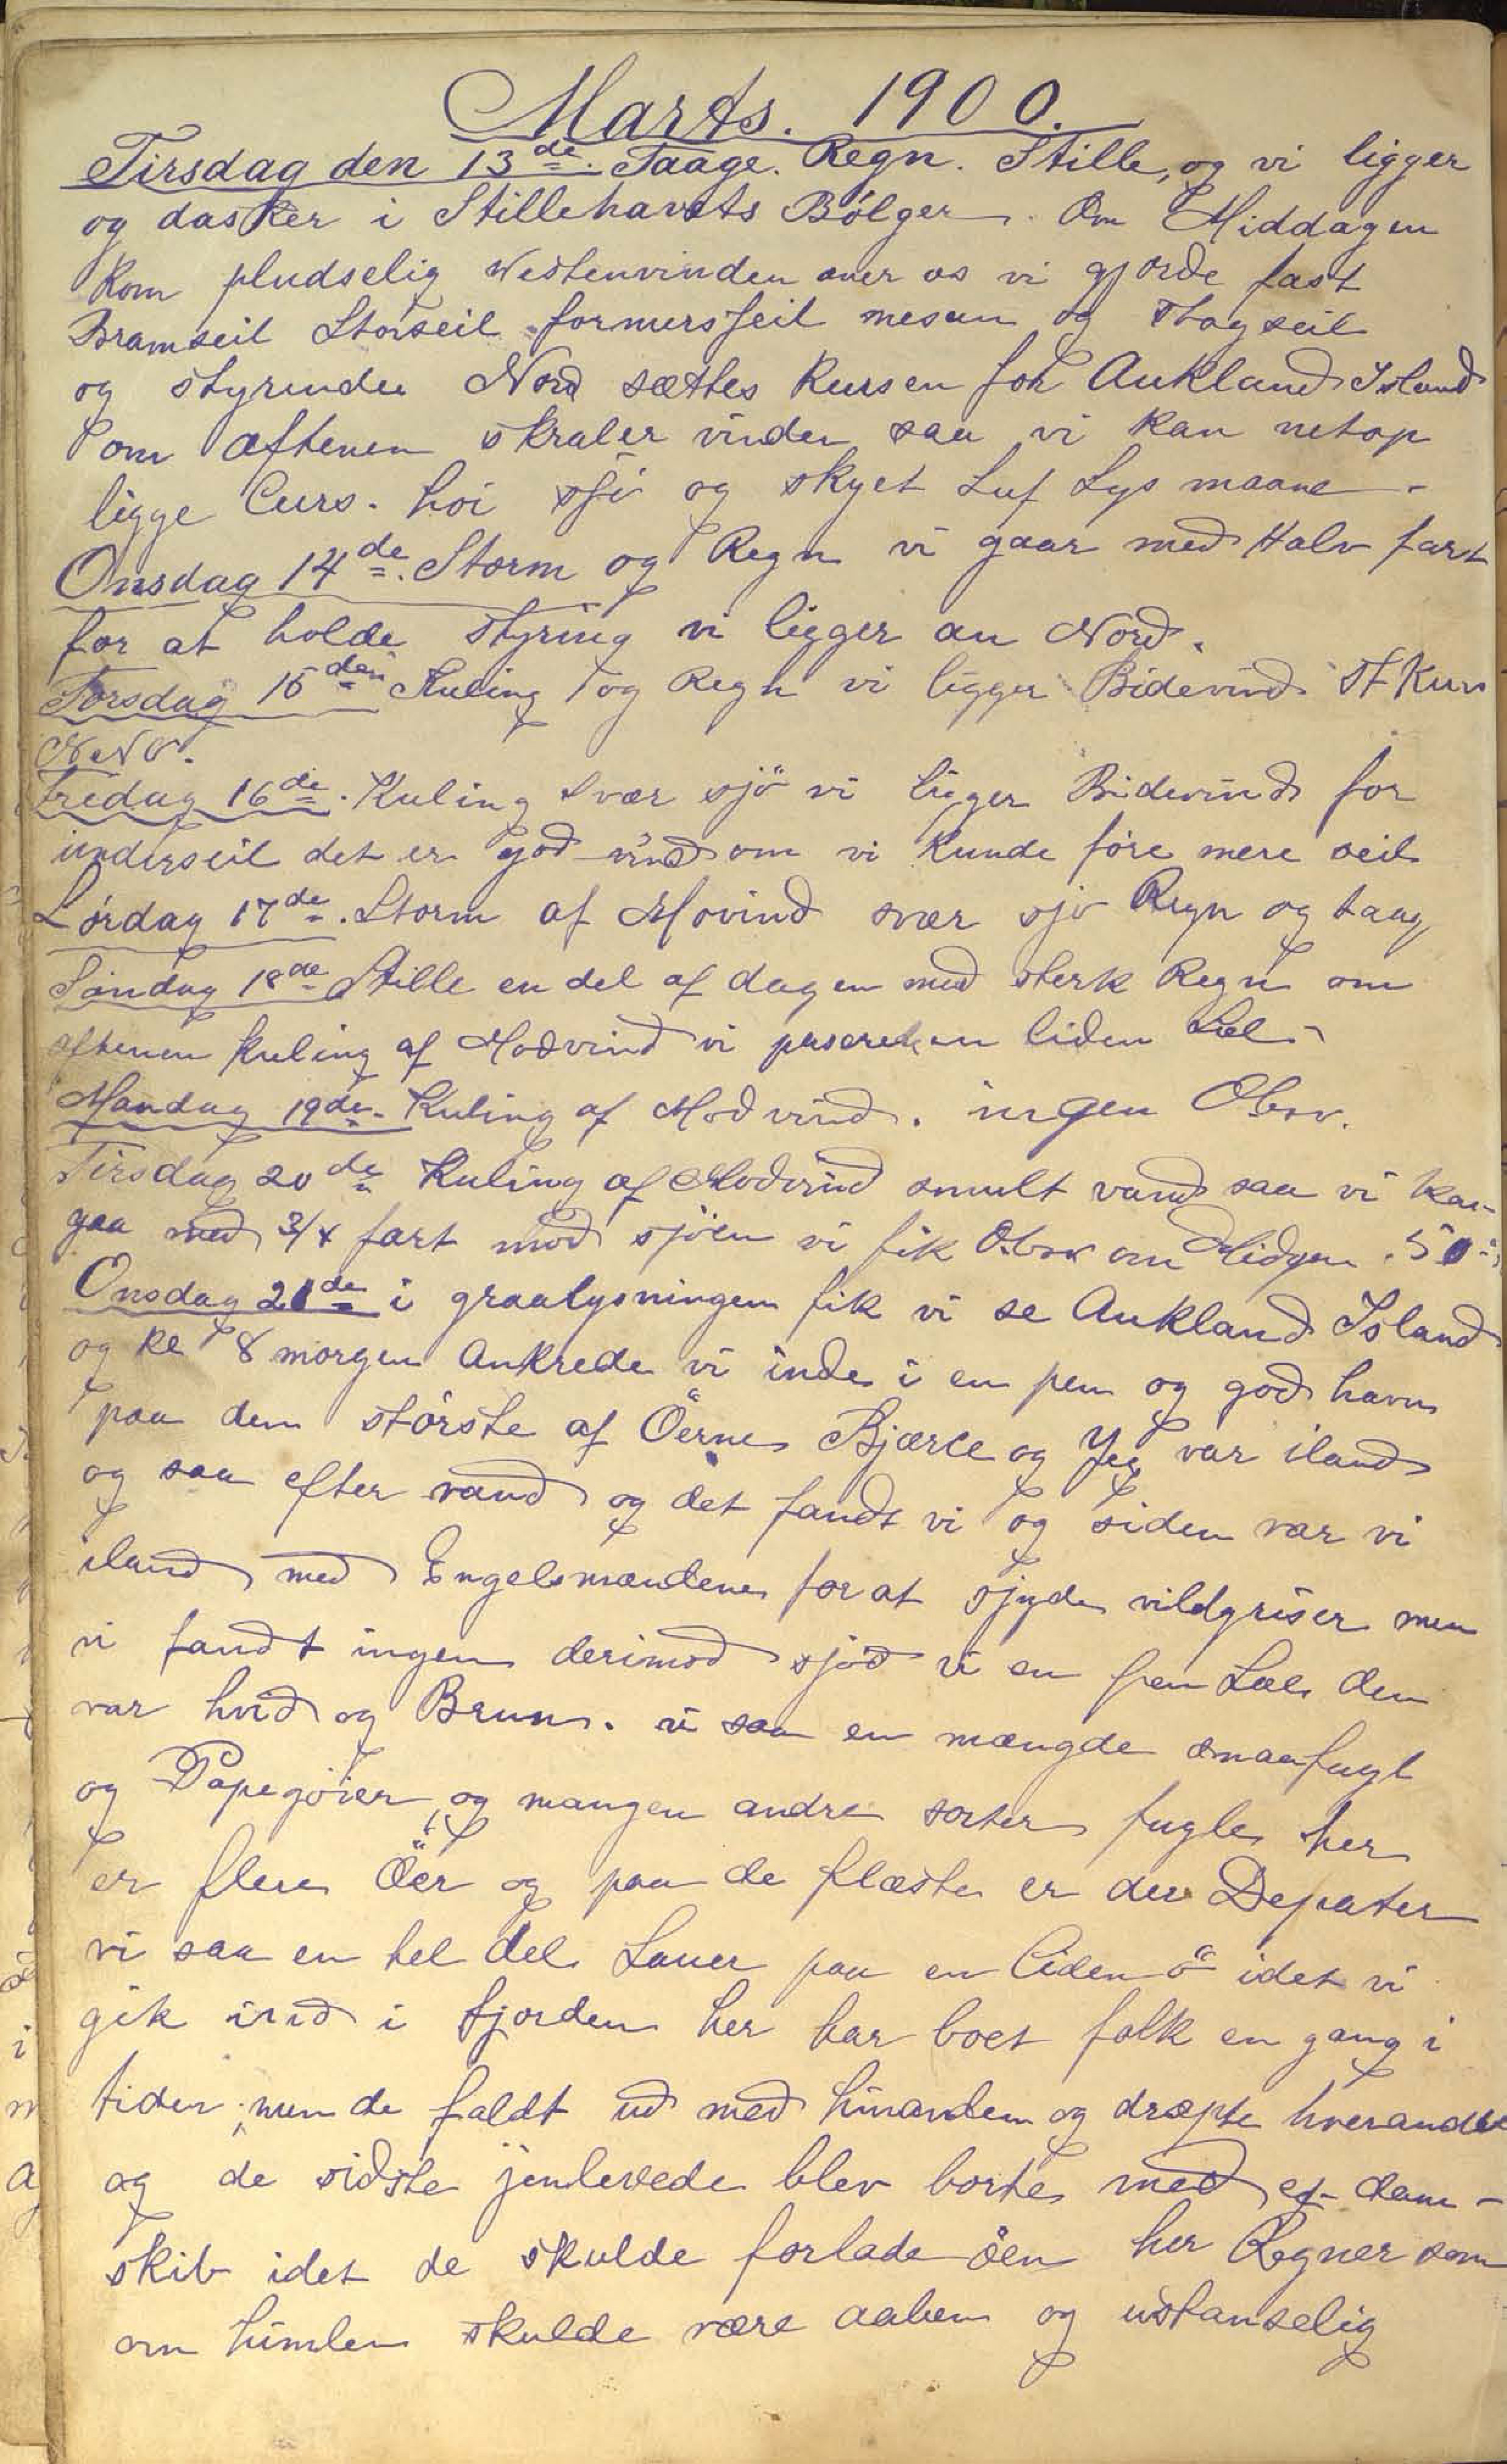 Marts. 1900.
Tirsdag den 13de. Taage. Regn. Stille, og vi ligger
og dasker i Stillehavets Bölger. Om Middagen
kom pludselig Westenvinden over os vi gjorde fast
Bramseil Storseil formersseil mesan og Stagseil
og styrende Nord sættes kursen for Aukland Island
om æftenen skraler vinden saa vi kan netop
ligge Curs. höi sjö og skyet Luf Lys maane.
Onsdag 14de. Storm og Regn vi gaar med Halv fart
for at holde styring vi ligger an Nord.
Torsdag 15den Kuling og Regn vi ligger Bidevind St Kurs
NNV.
Fredag 16de. Kuling svær sjö vi ligger Bidevind for
underseil det er god vind om vi kunde före mere seil
Lördag 17de. Storm af Movind svær sjö Regn og taag
Söndag 18de Stille en del af dagen med sterk Regn om
eftenen kuling af Modvind vi paseret en liden Sæl
Mandag 19de. Kuling af Modvind. ingen Obsv.
Tirsdag 20de Kuling af Modvind smult vand saa vi kan
gaa med 3/4 fart mod sjöen vi fik Obsv om
Onsdag 21de i graalysningen fik vi se Aukland Island
og kl 8 morgen Ankrede vi inde i en pen og god havn
paa den störste af Öerne Bjærce og Jeg var iland
og saa efter vand og det fandt vi og siden var vi
iland med Engelsmændene for at sjyde vildgriser men
vi fandt ingen derimod sjöd vi en pen Sæl den
var hvid og Brun. vi saa en mængde smaafugl
og Papegöier og mangen andre sorter fugle her
er flere Öer og paa de flæste er der Depater
vi saa en hel del Sauer paa en liden ö idet vi
gik ind i fjorden her har boet folk en gang i
tiden, men de faldt ud med hinanden og dræpte hverandre
og de sidste jenlevede blev borte med et dam-
skib idet de skulde forlade öen her Regner som
om himlen skulde være aaben og ustanselig